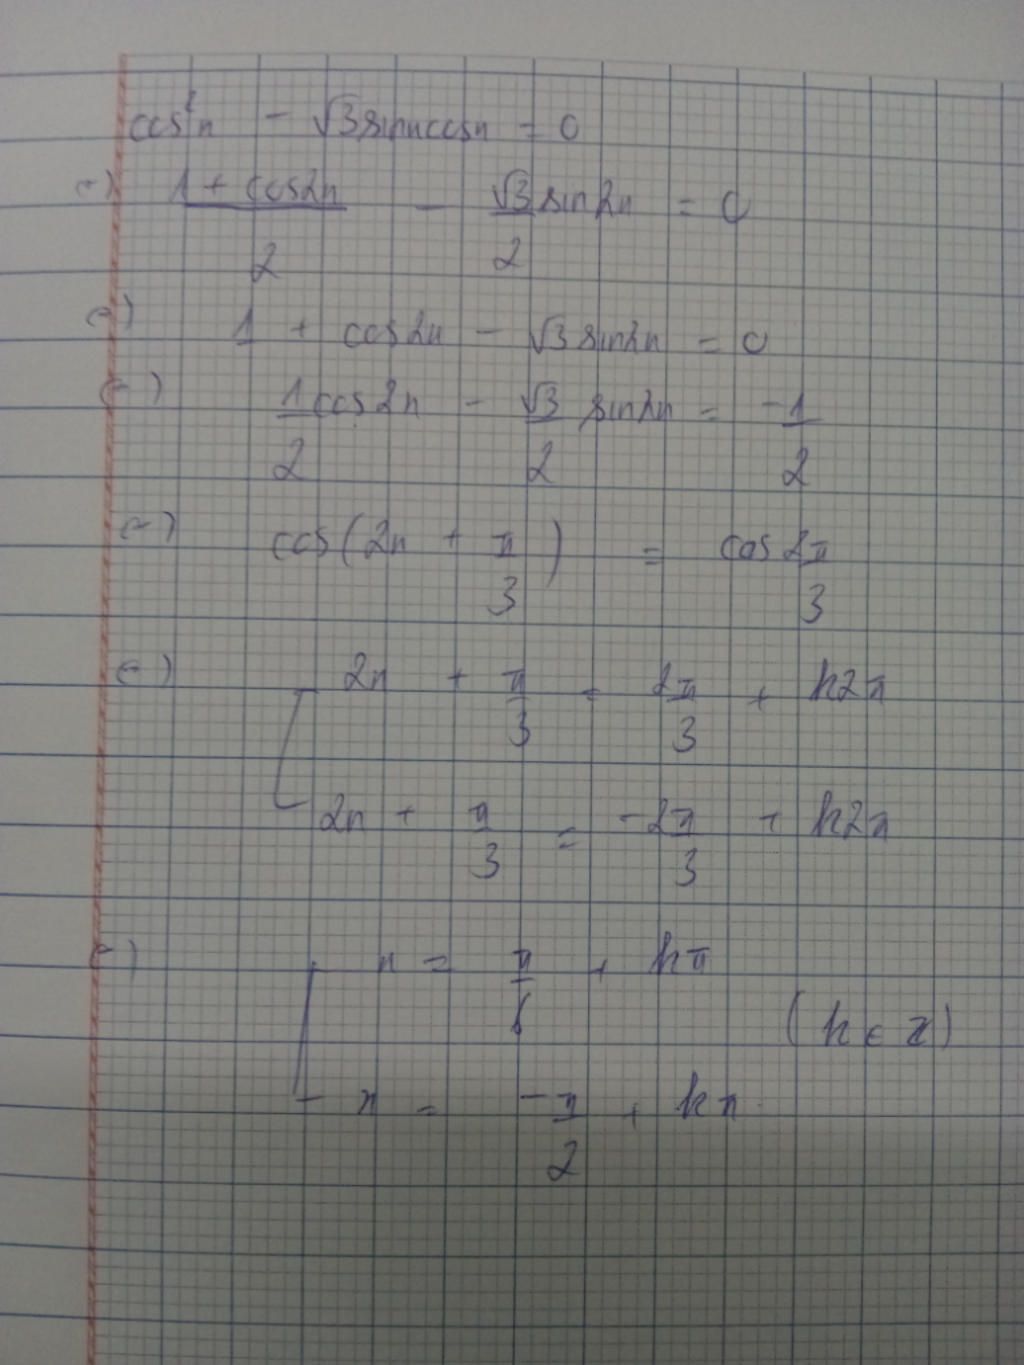 cos²x - √3 sinx cosx = 0
(=) (1 + cos2x)/2 - √3/2 sin2x = 0
(=) 1 + cos2x - √3 sin2x = 0
(=) 1/2 cos2x - √3/2 sin2x = -1/2
(=) cos(2x + π/3) = cos 2π/3
(=) [ 2x + π/3 = 2π/3 + k2π
2x + π/3 = -2π/3 + k2π
(=) [ x = π/6 + kπ
(k ∈ Z)
x = -π/2 + kπ